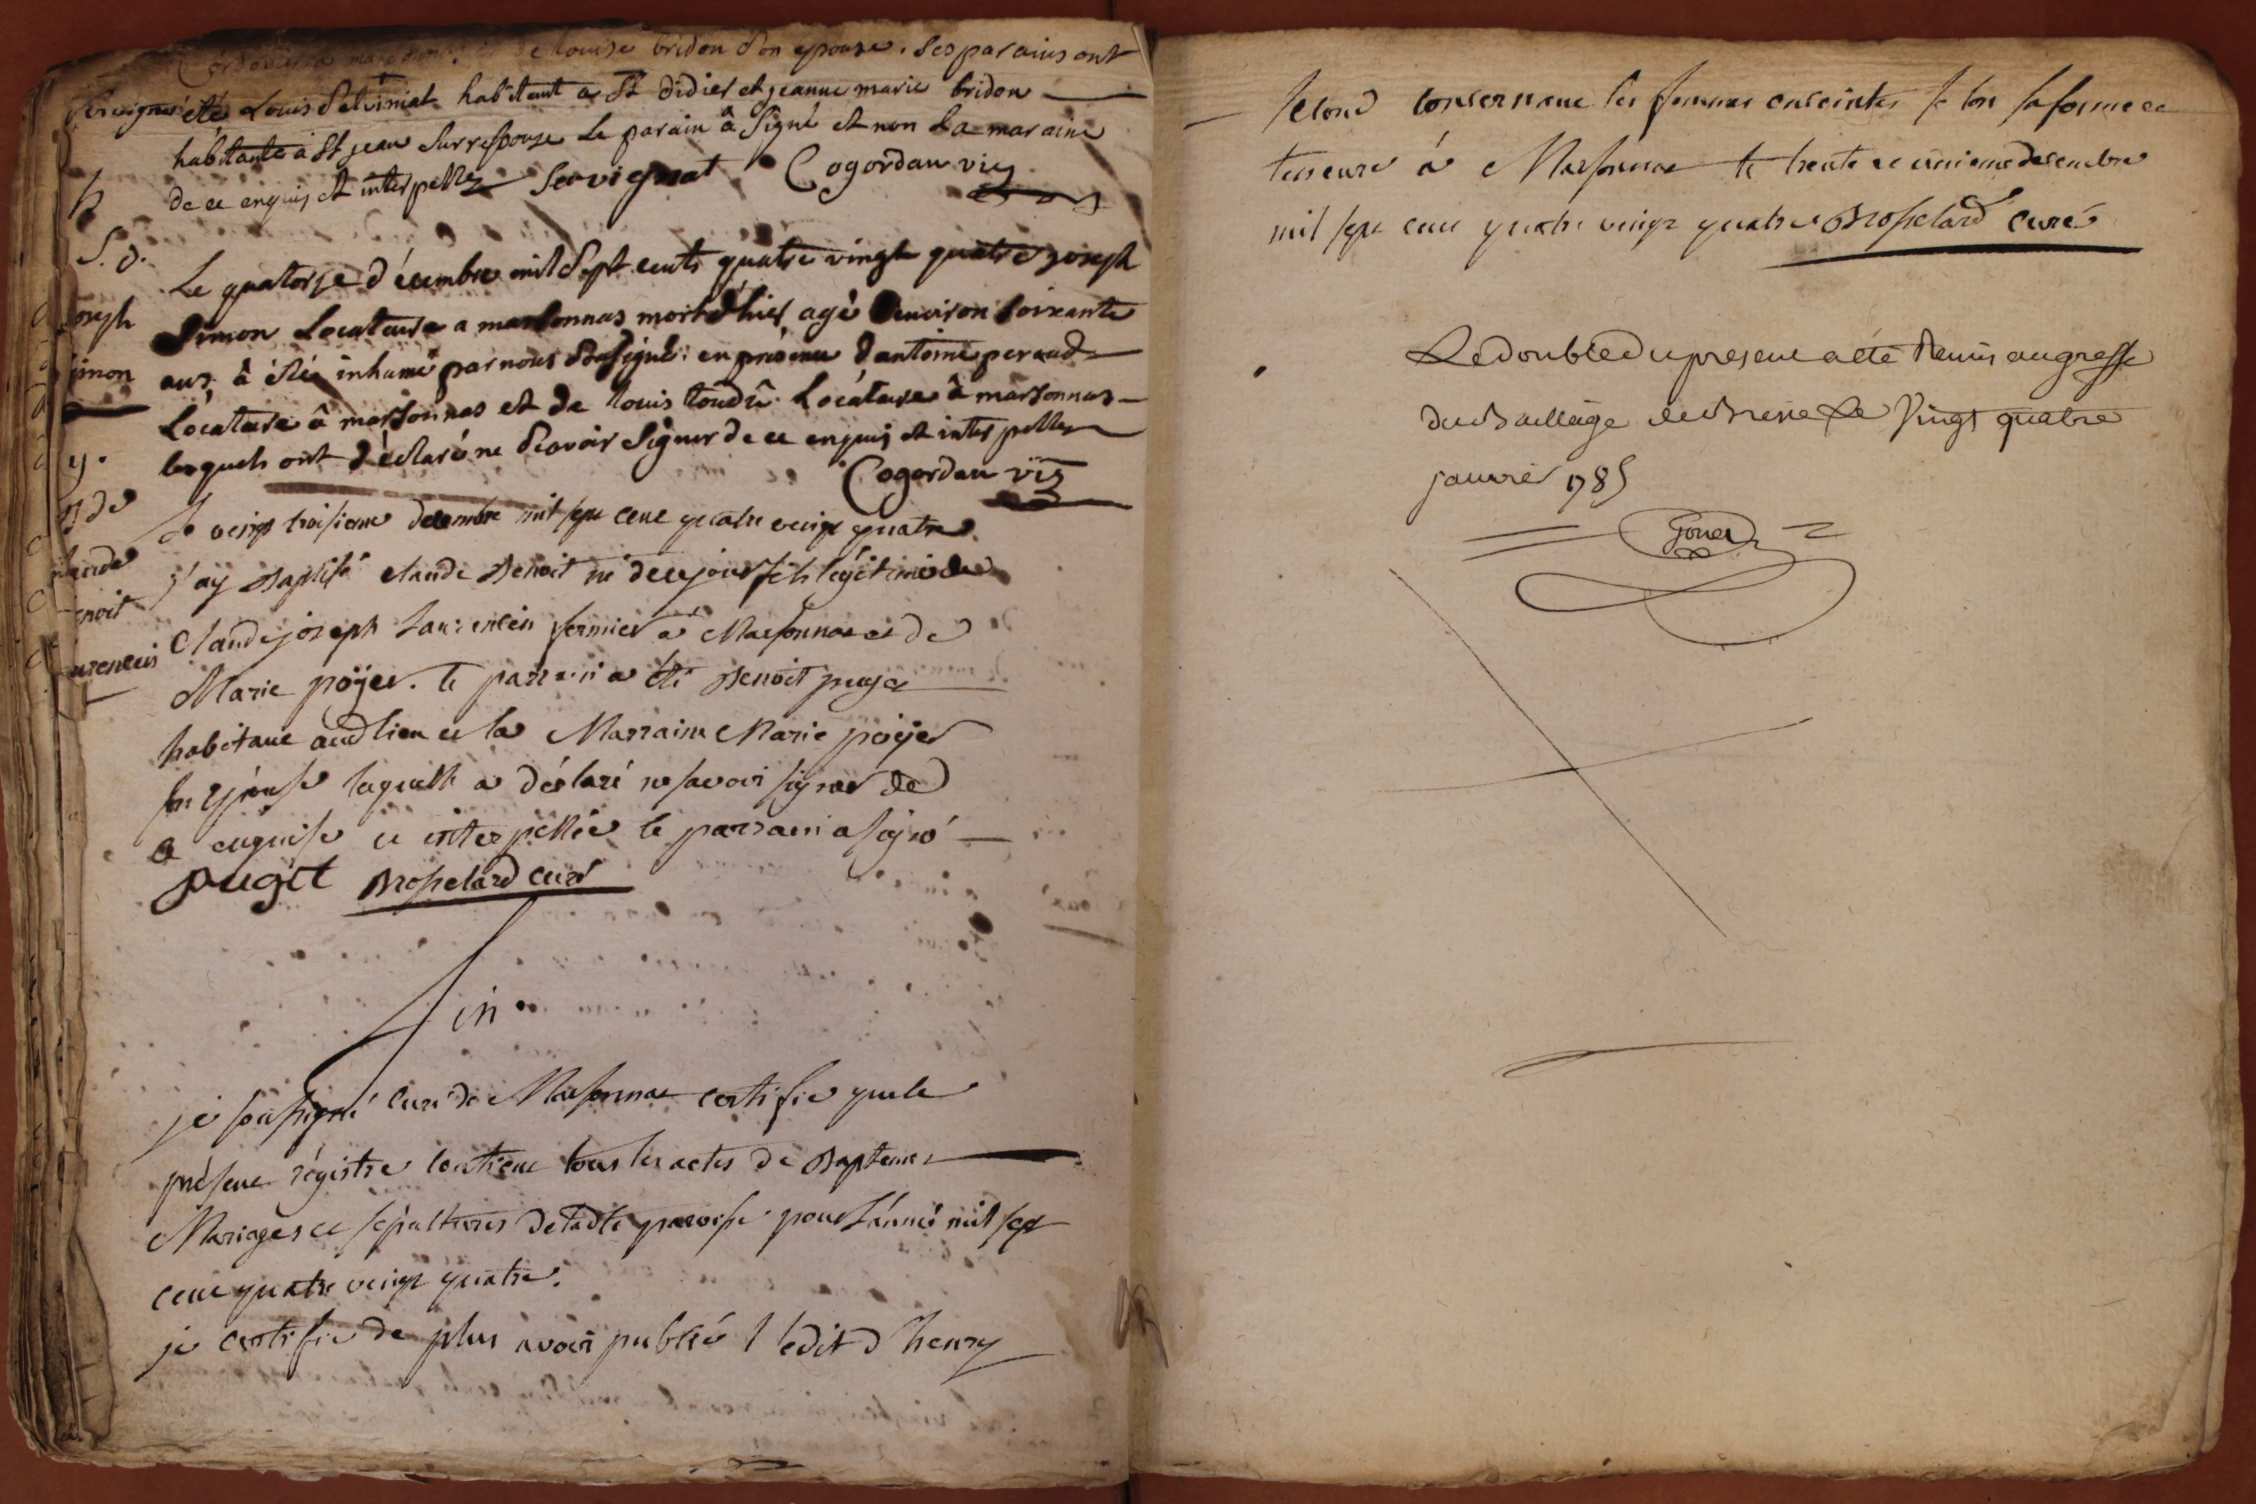 Cordonnier a marsonnas et de Louise bridon Son epouse. Ses parains ont
Servignat été Louis Selviniat habitant a St didier et jeanne marie bridon
habitante à St jean Sur resouze Le parain â Signé et non La maraine
de ce enquis et interpellez Servignat Cogordan vic
S. d.
Le quatorze décembre mil Sept cents quatre vingt quatre joseph
oseph
Simon Locataire a marsonnas mort d'hier agé denviron Soixante
imon
ans â été inhumé par nous Soussigné en présence d'antoine peraud
Locataire â marsonnas et de louis tondû Locataire â marsonnas
lesquels ont déclaré ne Scavoir Signer de ce enquis et interpellez
Cogordan vic
Le vingt troisieme decembre mil sept cent quatre vingt quatre
j'ay Baptisé claude Benoit né de ce jour fils légitime de
laude
enoit
Claude joseph Laurencin fermier à Marsonnas et de
urencin
Marie poÿer. le parrain a été Benoit puget
habitant aud lieu et la Marraine Marie poÿer
son Epouse laquelle a déclaré ne savoir signer de
ce enquise et interpellée le parrain a signé
pugét Brosselard curé
fin
je soussigné curé de Marsonnas certifie que le
présent régistre contient tous les actes de Baptemes
Mariages et sépultures de ladte paroisse pour l'année mil sept
cent quatre vingt quatre.
je certifie de plus avoir publié l'edit d'henry
second concernant les femmes enceintes selon sa forme et
teneure à Marsonnas le trente et unieme decembre
mil sept cent quatre vingt quatre Brosselard curé
Le double du present a été Remis au greffe
du Bailliage de Bresse Le Vingt quatre
janvier 1785